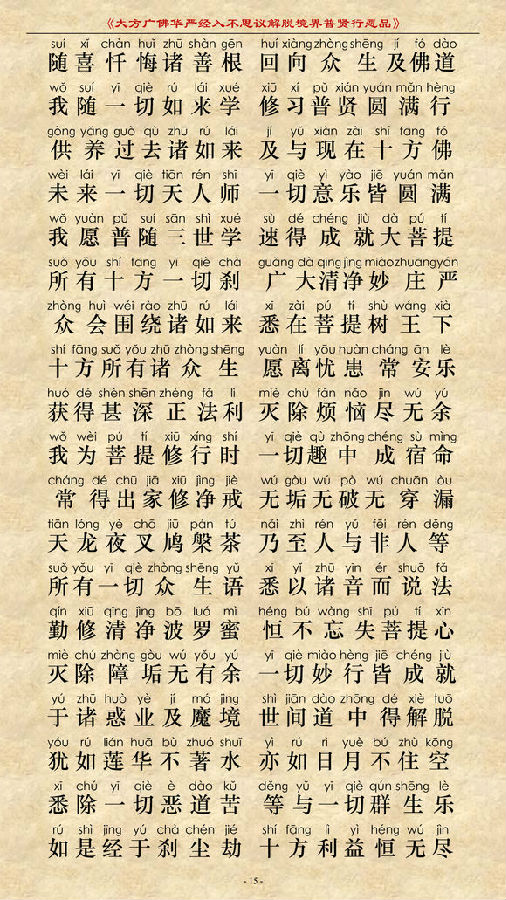 《大方广佛华严经入不思议解脱境界普贤行愿品》
suí xǐ chàn huǐ zhū shàn gēn huí xiàng zhòng shēng jí fó dào
随喜忏悔诸善根 回向众生及佛道
wǒ suí yī qiè rú lái xué xiū xí pǔ xián yuán mǎn hèng
我随一切如来学 修习普贤圆满行
gòng yàng guò qù zhū rú lái jí yǔ xiàn zài shí fāng fó
供养过去诸如来 及与现在十方佛
wèi lái yī qiè tiān rén shī yī qiè yì yào jiē yuán mǎn
未来一切天人师 一切意乐皆圆满
wǒ yuàn pǔ suí sān shì xué sù dé chéng jiù dà pú tí
我愿普随三世学 速得成就大菩提
suǒ yǒu shí fāng yī qiè chà guǎng dà qīng jìng miào zhuāng yán
所有十方一切刹 广大清净妙庄严
zhòng huì wéi rào zhū rú lái xī zài pú tí shù wáng xià
众会围绕诸如来 悉在菩提树王下
shí fāng suǒ yǒu zhū zhòng shēng yuàn lí yōu huàn cháng ān lè
十方所有诸众生 愿离忧患常安乐
huò dé shèn shēn zhèng fǎ lì miè chú fán nǎo jìn wú yú
获得甚深正法利 灭除烦恼尽无余
wǒ wèi pú tí xiū xíng shí yī qiè qù zhōng chéng sù mìng
我为菩提修行时 一切趣中成宿命
cháng dé chū jiā xiū jìng jiè wú gòu wú pò wú chuān lòu
常得出家修净戒 无垢无破无穿漏
tiān lóng yè chā jiū pán tú nǎi zhì rén yǔ fēi rén děng
天龙夜叉鸠槃荼 乃至人与非人等
suǒ yǒu yī qiè zhòng shēng yǔ xī yǐ zhū yīn ér shuō fǎ
所有一切众生语 悉以诸音而说法
qín xiū qīng jìng bō luó mì héng bú wàng shī pú tí xīn
勤修清净波罗蜜 恒不忘失菩提心
miè chú zhàng gòu wú yǒu yú yī qiè miào hèng jiē chéng jiù
灭除障垢无有余 一切妙行皆成就
yú zhū huò yè jí mó jìng shì jiān dào zhōng dé xiè tuō
于诸惑业及魔境 世间道中得解脱
yóu rú lián huā bù zhuó shuǐ yì rú rì yuè bú zhù kōng
犹如莲华不著水 亦如日月不住空
xī chú yī qiè è dào kǔ děng yǔ yī qiè qún shēng lè
悉除一切恶道苦 等与一切群生乐
rú shì jīng yú chà chén jié shí fāng lì yì héng wú jìn
如是经于刹尘劫 十方利益恒无尽
- 15 -